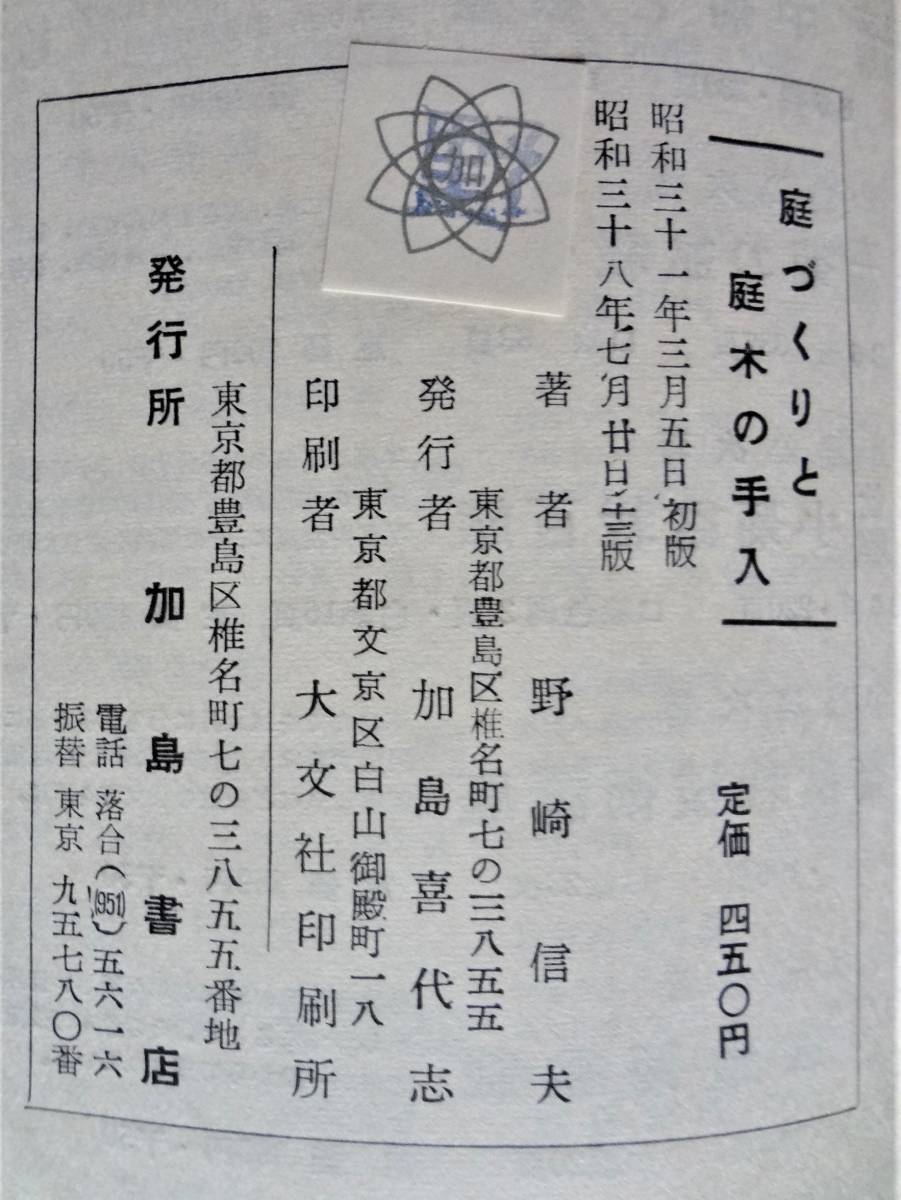 庭づくりと
庭木の手入
定価 四五〇円
昭和三十一年三月五日 初版
昭和三十八年七月廿日 十三版
著者 野崎信夫
東京都豊島区椎名町七の三八五五
発行者 加島喜代志
東京都文京区白山御殿町一八
印刷者 大文社印刷所
東京都豊島区椎名町七の三八五五番地
発行所 加島書店
電話 落合(951)五六一六
振替 東京 九五七八〇番
加